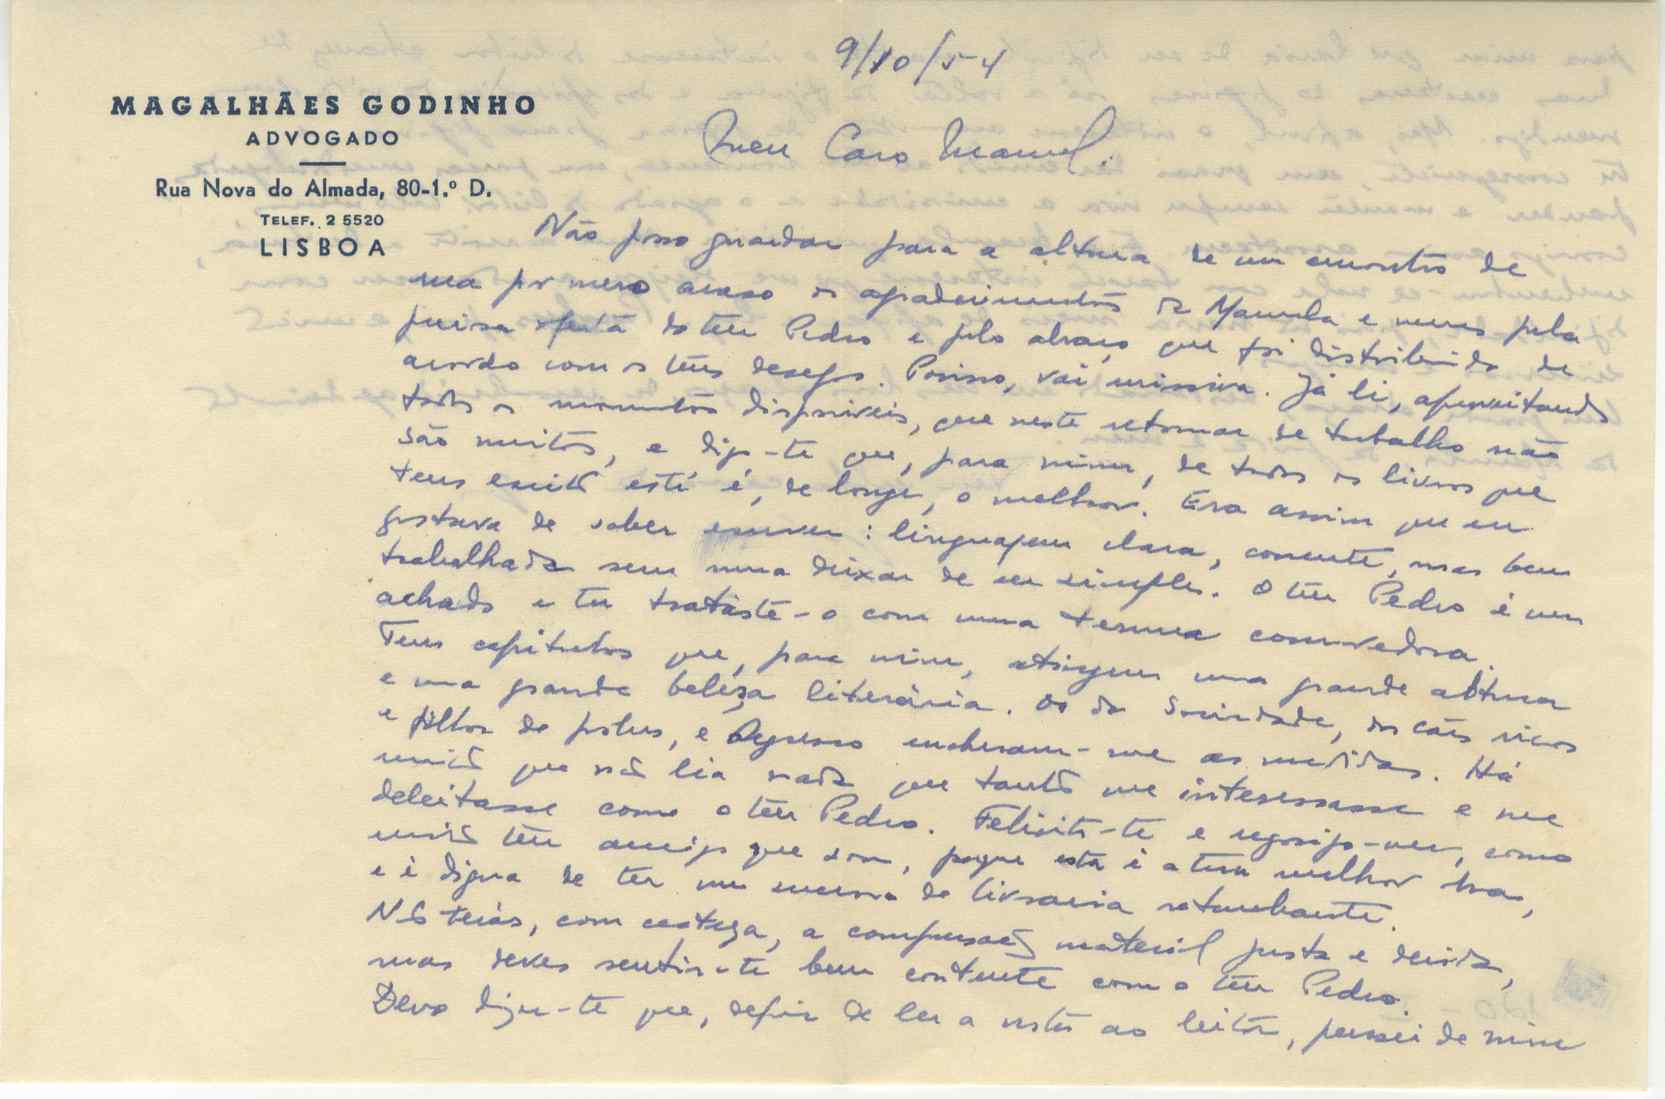 9/10/54
MAGALHÃES GODINHO
ADVOGADO
Rua Nova do Almada, 80-1.º D.
TELEF. 2 5520
LISBOA
Meu Caro Manuel.
Não posso guardar para a altura de um encontro de
rua por mero acaso os agradecimentos da Manuela e meus pela
oferta do teu Pedro e pelo abraço que foi distribuido de
acordo com os teus desejos. Porisso, vai missiva. Já li, aproveitando
todos os momentos disponiveis, que neste retomar de trabalho não
são muitos, e digo-te que, para mim, de todos os livros que
tens escrito este é, de longe, o melhor. Era assim que eu
gostava de saber escrever: linguagem clara, corrente, mas bem
trabalhada sem nunca deixar de ser simples. O teu Pedro é um
achado e tu trataste-o com uma ternura comovedora.
Tens capitulos que, para mim, atingem uma grande altura
e uma grande beleza literária. Os da Sociedade, dos cães ricos
e filhos de pobres, e Regresso encheram-me as medidas. Há
muito que não lia nada que tanto me interessasse e me
deleitasse como o teu Pedro. Felicito-te e regosijo-me, como
muito teu amigo que sou, porque esta é a tua melhor obra,
e é digna de ter um sucesso de livraria retumbante.
Não terás, com certeza, a compensação material justa e devida,
mas deves sentir-te bem contente com o teu Pedro.
Devo dizer-te que, depois de ler a nota ao leitor, pensei de mim